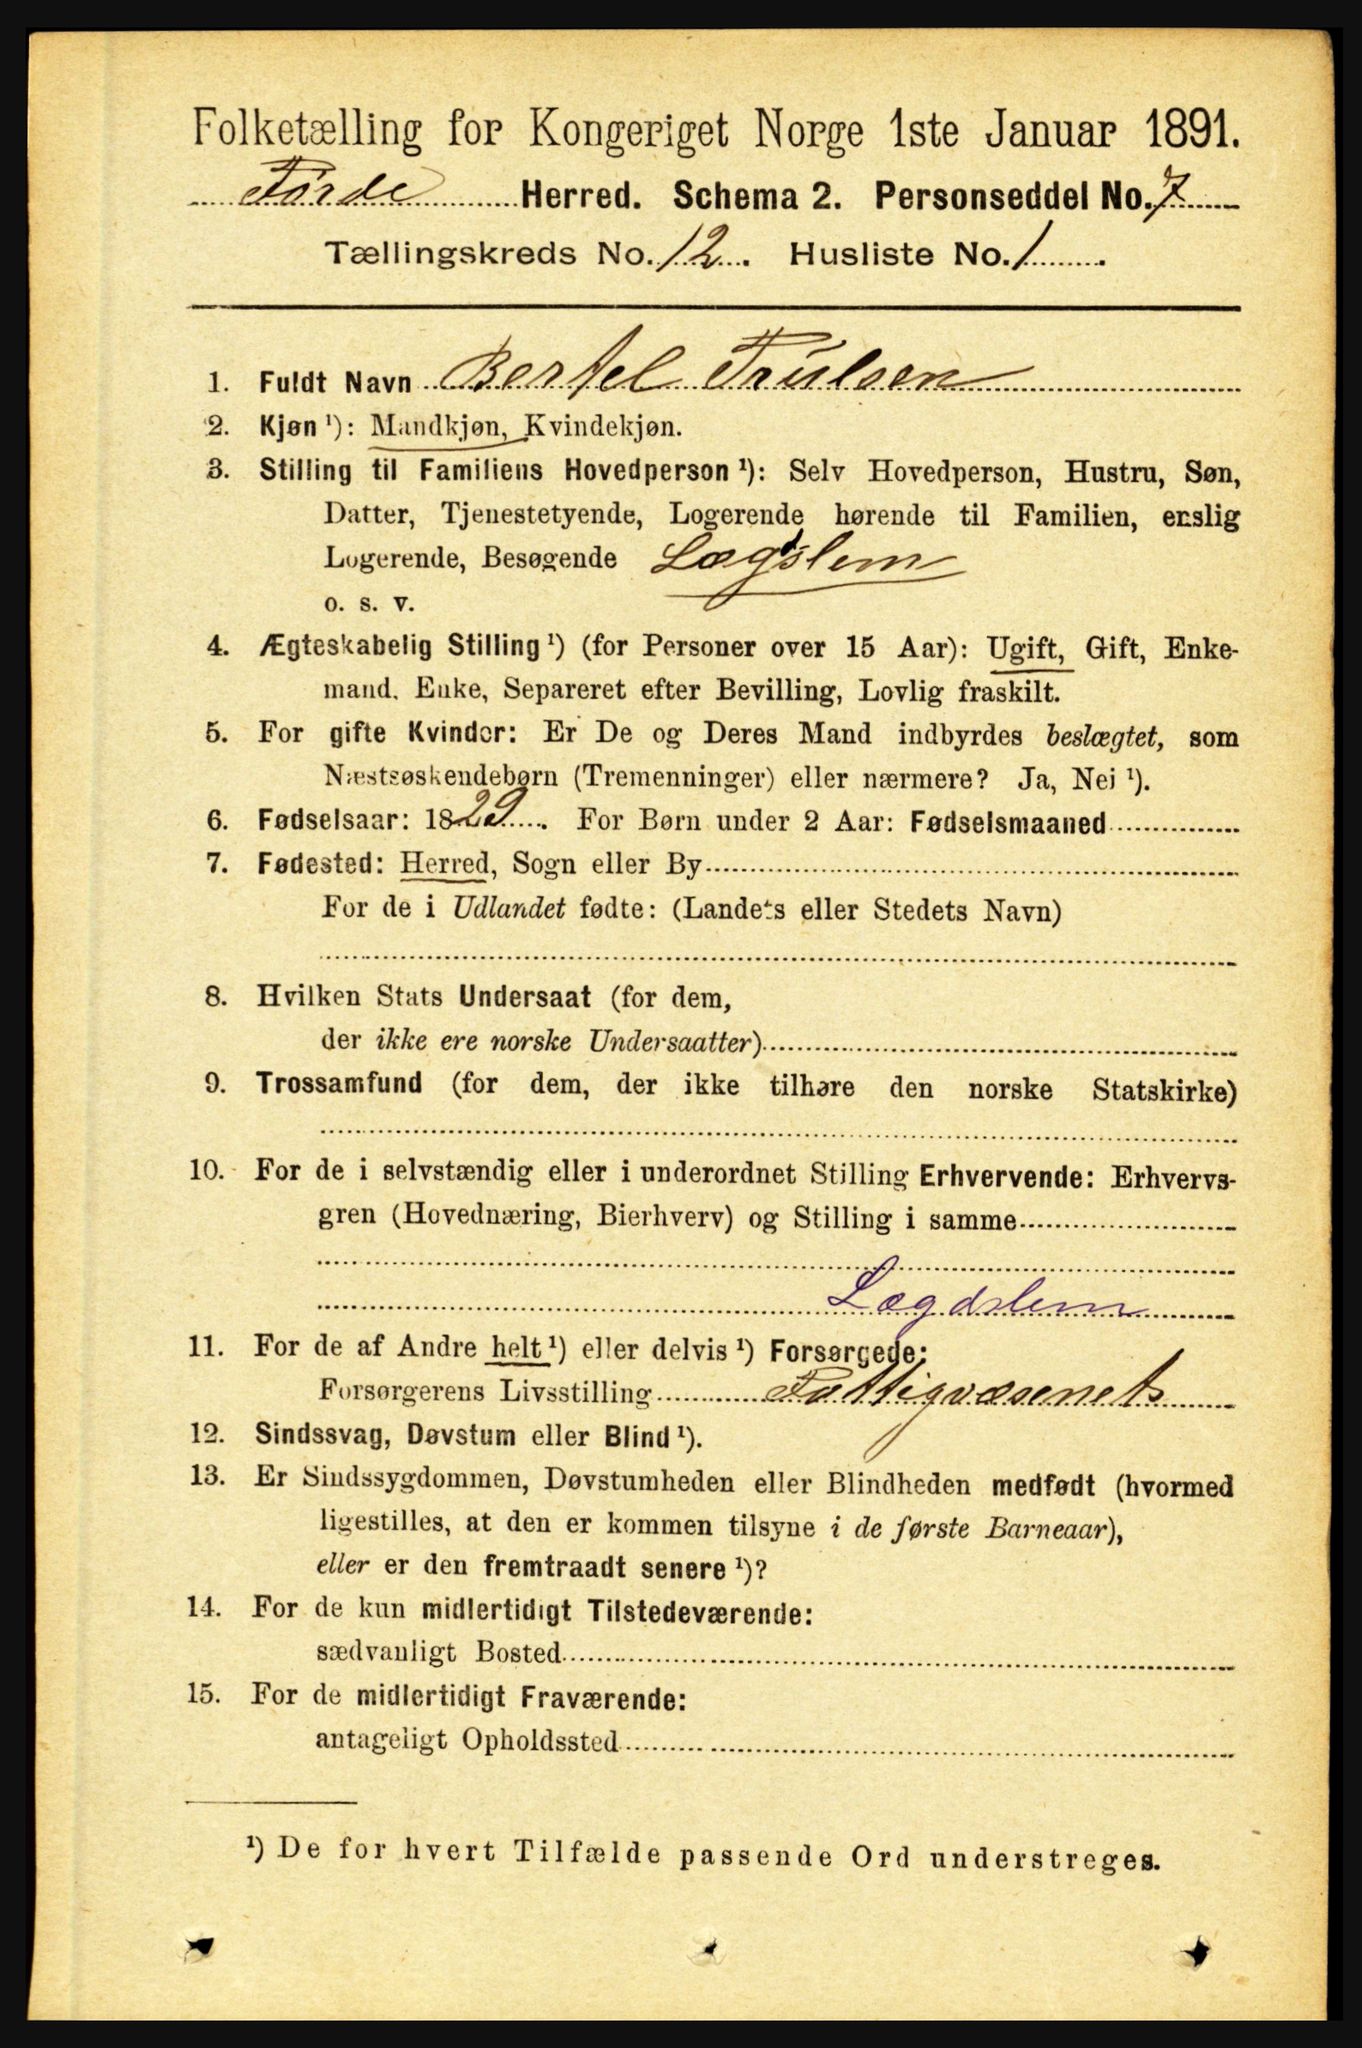 Folketælling for Kongeriget Norge 1ste Januar 1891.
Førde Herred. Schema 2. Personseddel No. 7
Tællingskreds No. 12. Husliste No. 1.
1. Fuldt Navn Bertel Trulsen
2. Kjøn ¹): Mandkjøn, Kvindekjøn.
3. Stilling til Familiens Hovedperson ¹): Selv Hovedperson, Hustru, Søn,
Datter, Tjenestetyende, Logerende hørende til Familien, enslig
Logerende, Besøgende Lægdslem
o. s. v.
4. Ægteskabelig Stilling ¹) (for Personer over 15 Aar): Ugift, Gift, Enke-
mand, Enke, Separeret efter Bevilling, Lovlig fraskilt.
5. For gifte Kvinder: Er De og Deres Mand indbyrdes beslægtet, som
Næstsøskendebørn (Tremenninger) eller nærmere? Ja, Nei ¹).
6. Fødselsaar: 1829. For Børn under 2 Aar: Fødselsmaaned
7. Fødested: Herred, Sogn eller By
For de i Udlandet fødte: (Landets eller Stedets Navn)
8. Hvilken Stats Undersaat (for dem,
der ikke ere norske Undersaatter)
9. Trossamfund (for dem, der ikke tilhøre den norske Statskirke)
10. For de i selvstændig eller i underordnet Stilling Erhvervende: Erhvervs-
gren (Hovednæring, Bierhverv) og Stilling i samme
Lægdslem
11. For de af Andre helt ¹) eller delvis ¹) Forsørgede:
Forsørgerens Livsstilling Fattigvæsenets
12. Sindssvag, Døvstum eller Blind ¹).
13. Er Sindssygdommen, Døvstumheden eller Blindheden medfødt (hvormed
ligestilles, at den er kommen tilsyne i de første Barneaar),
eller er den fremtraadt senere ¹)?
14. For de kun midlertidigt Tilstedeværende:
sædvanligt Bosted
15. For de midlertidigt Fraværende:
antageligt Opholdssted
¹) De for hvert Tilfælde passende Ord understreges.